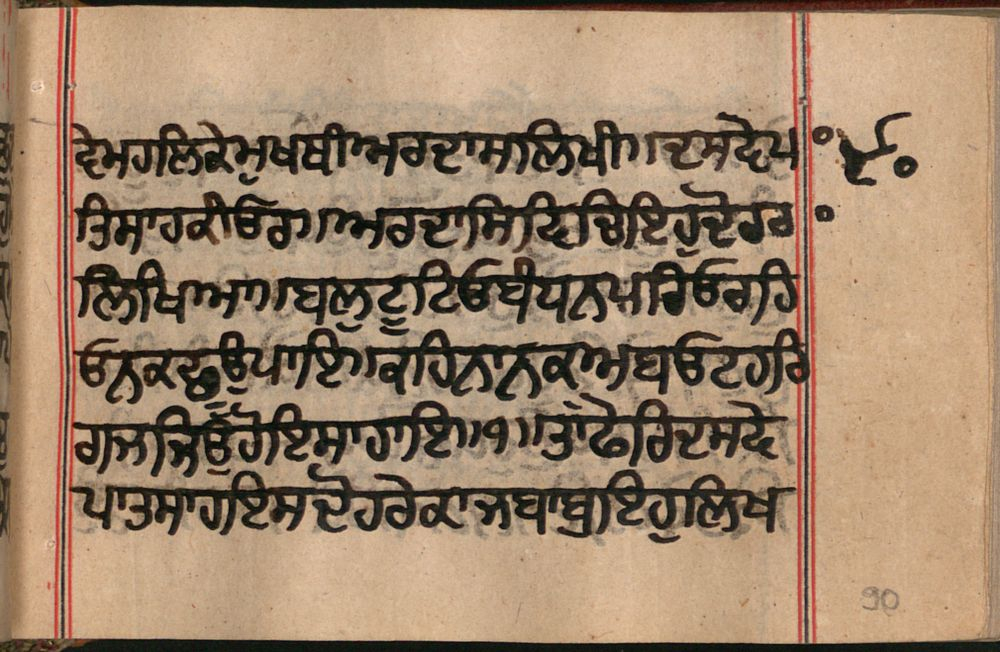 ਦੇਮਹਲਿਕੇਮੁਖਬੀਅਰਦਾਸਲਿਖੀ॥ਦਸਵੇਪਾ
ਤਿਸਾਹਕੀਓਰ॥ਅਰਦਾਸਿਵਿਚਿਇਹੁਦੋਹਰਾ
ਲਿਖਿਆ॥ਬਲੁਟੂਟਿਓਬੰਧਨਪਰਿਓਰਹਿ
ਓਨਕਛੂਉਪਾਇ॥ਕਹਿਨਾਨਕਅਬਓਟਹਰਿ
ਗਜਜਿਉਂਹੋਇਸਹਾਇ॥੧॥ਤਾਂਫੇਰਿਦਸਵੇ
ਪਾਤਸਾਹਇਸਦੋਹਰੇਕਾਜਬਾਬੁਇਹੁਲਿਖ
90